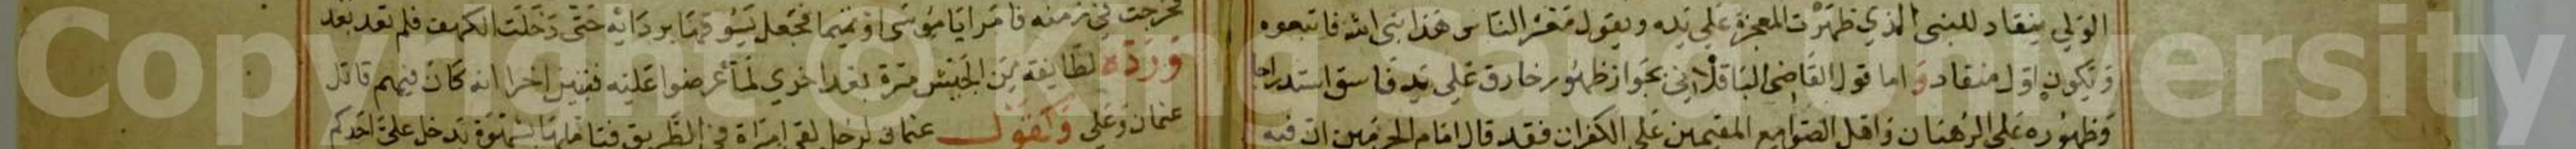 الولي ينقاد للنبي الذي ظهرت المعجزة على يده ويقول معشر الناس هذا نبي الله فاتبعوه
ويكون اول منقاد واما قول القاضي الباقلاني بجواز ظهور خارق على يد فاسق استدراجا
وظهوره على الرهبان واهل الصوامع المقيمين على الكفران فقد قال امام الحرمين ان فيه
فخرجت في زمنه فامر ابا موسى او تميما فجعل يسوقها بردايه حتى دخلت الكهف فلم تعد بعد
ورده لطايفة من الجيش مرة بعد اخرى لما عرضوا عليه فتبين اخرا انه كان فيهم قاتل
عثمان وعلي وكقول عثمان لرجل لقي امراة في الطريق فتاملها بشهوة يدخل علي احدكم